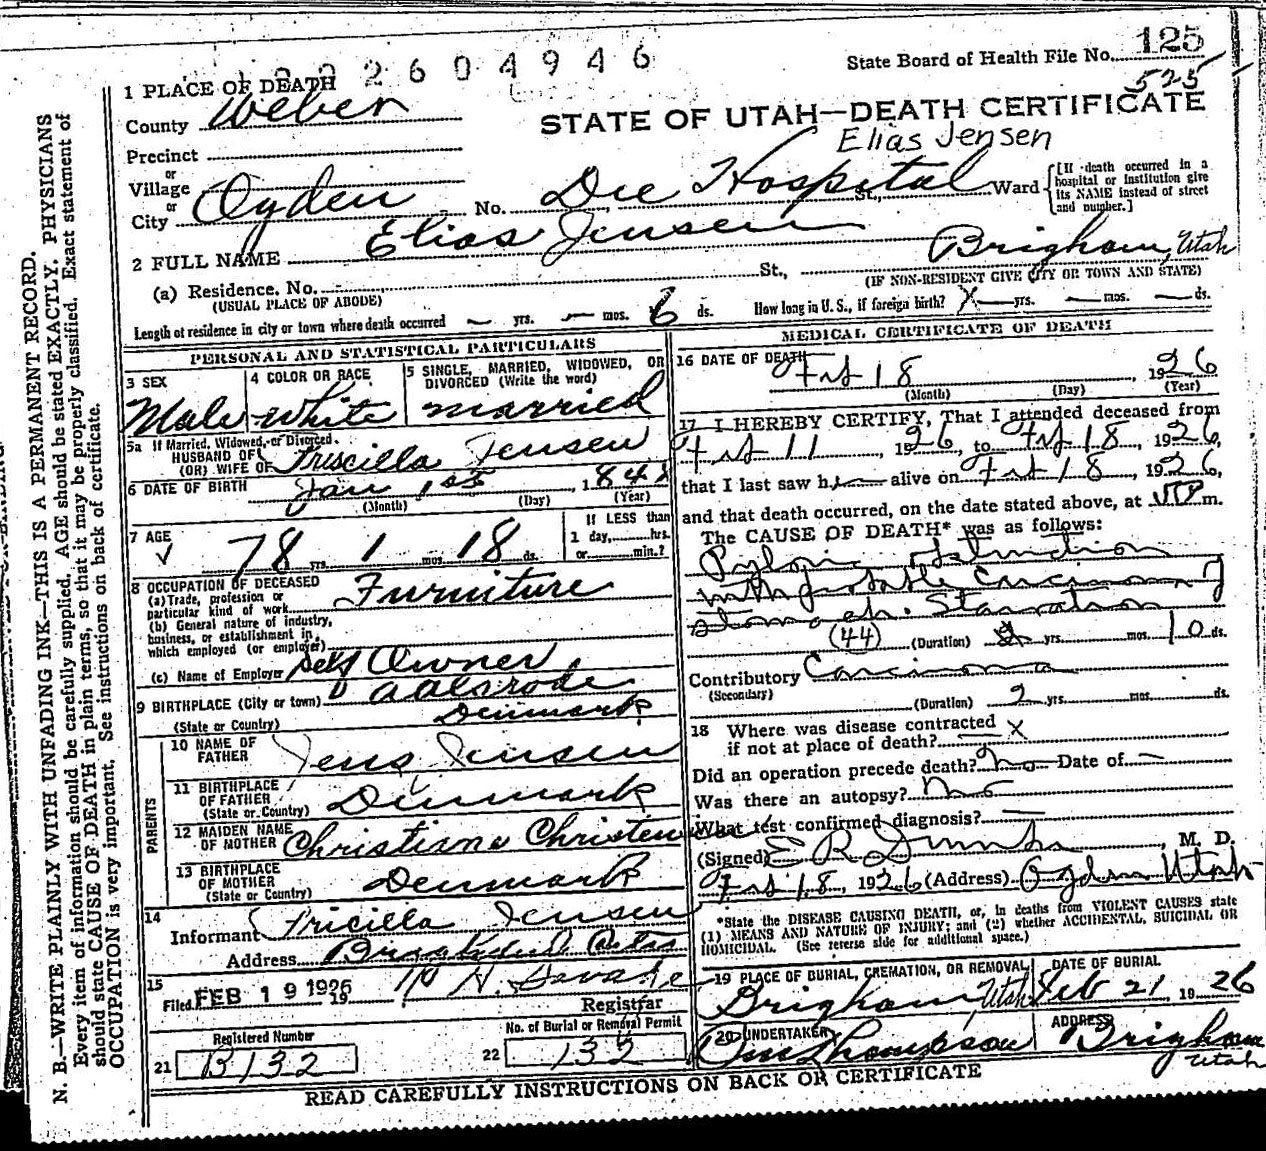 2604946
State Board of Health File No. 125
525
1 PLACE OF DEATH
STATE OF UTAH—DEATH CERTIFICATE
County Weber
Elias Jensen
Precinct
or
Village
or
City Ogden No. Dee Hospital St., Ward
[If death occurred in a hospital or institution give its NAME instead of street and number.]
2 FULL NAME Elias Jensen
(a) Residence. No. St., Brigham, Utah
(USUAL PLACE OF ABODE) (IF NON-RESIDENT GIVE CITY OR TOWN AND STATE)
Length of residence in city or town where death occurred — yrs. — mos. 6 ds. How long in U. S., if foreign birth? X — yrs. — mos. — ds.
PERSONAL AND STATISTICAL PARTICULARS
3 SEX
Male
4 COLOR OR RACE
White
5 SINGLE, MARRIED, WIDOWED, OR DIVORCED (Write the word)
married
5a If Married, Widowed, or Divorced.
HUSBAND OF
(OR) WIFE OF Priscilla Jensen
6 DATE OF BIRTH Jan 1st, 1848
(Month) (Day) (Year)
7 AGE
78 yrs. 1 mos. 18 ds.
If LESS than
1 day, hrs.
or min.?
8 OCCUPATION OF DECEASED
(a) Trade, profession or
particular kind of work Furniture
(b) General nature of industry,
business, or establishment in
which employed (or employer)
(c) Name of Employer Self Owner
9 BIRTHPLACE (City or town)
(State or Country) Denmark
PARENTS
10 NAME OF
FATHER Jens Jensen
11 BIRTHPLACE
OF FATHER
(State or Country) Denmark
12 MAIDEN NAME
OF MOTHER Christiana
13 BIRTHPLACE
OF MOTHER
(State or Country) Denmark
14
Informant Pricilla Jensen
Address
15
Filed FEB 19 1926 19
Registrar
Registered Number
21 B132
No. of Burial or Removal Permit
22 132
MEDICAL CERTIFICATE OF DEATH
16 DATE OF DEATH Feb 18, 1926
(Month) (Day) (Year)
17 I HEREBY CERTIFY, That I attended deceased from
Feb 11, 1926, to Feb 18, 1926,
that I last saw h alive on Feb 18, 1926,
and that death occurred, on the date stated above, at m.
The CAUSE OF DEATH* was as follows:
Pyloric
with probable Carcinoma of
stomach. Starvation
(44) (Duration) yrs. mos. 10 ds.
Contributory Carcinoma
(Secondary) (Duration) 2 yrs. mos. ds.
18 Where was disease contracted
if not at place of death? X
Did an operation precede death? no Date of —
Was there an autopsy? no
What test confirmed diagnosis? —
(Signed) E R, M. D.
Feb 18, 1926 (Address) Ogden Utah
*State the DISEASE CAUSING DEATH, or, in deaths from VIOLENT CAUSES state
(1) MEANS AND NATURE OF INJURY; and (2) whether ACCIDENTAL, SUICIDAL OR
HOMICIDAL. (See reverse side for additional space.)
19 PLACE OF BURIAL, CREMATION, OR REMOVAL
Brigham, Utah
DATE OF BURIAL
Feb 21 1926
20 UNDERTAKER
Thompson
ADDRESS
Brigham
Utah
READ CAREFULLY INSTRUCTIONS ON BACK OF CERTIFICATE
N. B.—WRITE PLAINLY WITH UNFADING INK—THIS IS A PERMANENT RECORD.
Every item of information should be carefully supplied. AGE should be stated EXACTLY. PHYSICIANS
should state CAUSE OF DEATH in plain terms, so that it may be properly classified. Exact statement of
OCCUPATION is very important. See instructions on back of certificate.